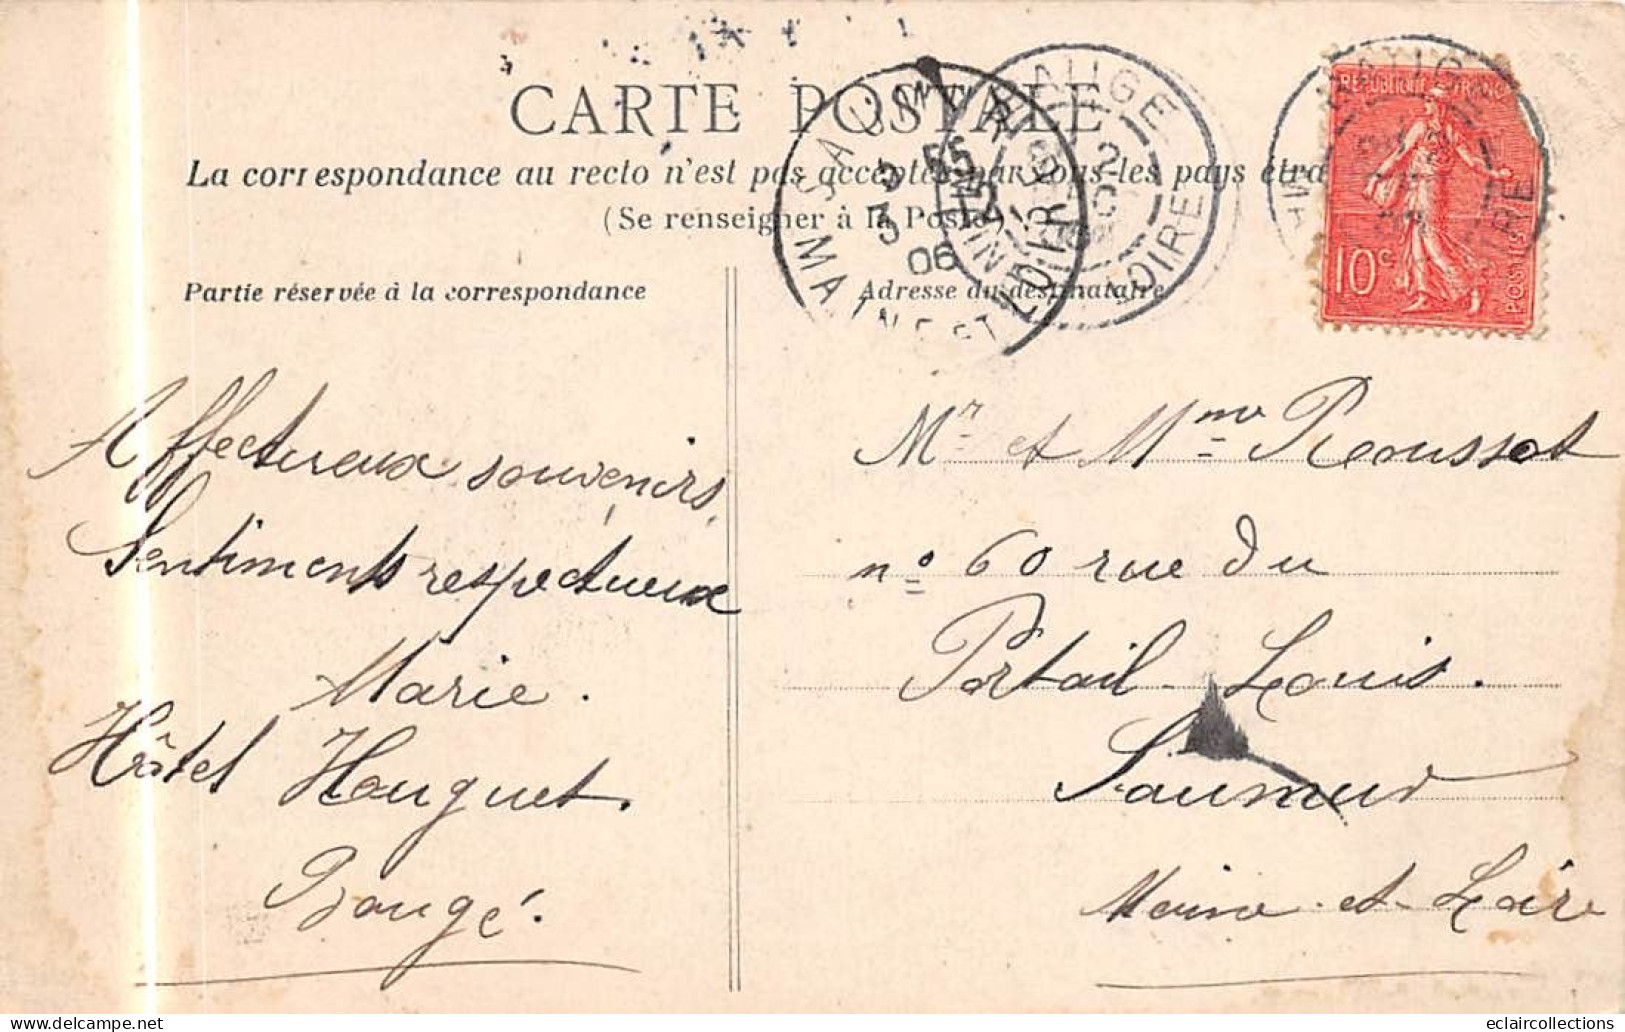 CARTE POSTALE
La correspondance au recto n'est pas acceptée par tous les pays étra
(Se renseigner à la Poste)
Partie réservée à la correspondance
Adresse du destinataire
REPUBLIQUE FRANC
10c
POSTES
BAUGE
LOIRE
SAUMUR
MAINE ET LOIRE
06
Affectueux souvenirs,
Sentiments respectueux
Marie.
Hôtel Houguet.
Baugé.
Mr et Mme Roussot
nº 60 rue du
Portail-Louis.
Saumur
Maine-et-Loire
eclaircollections
delcampe.net